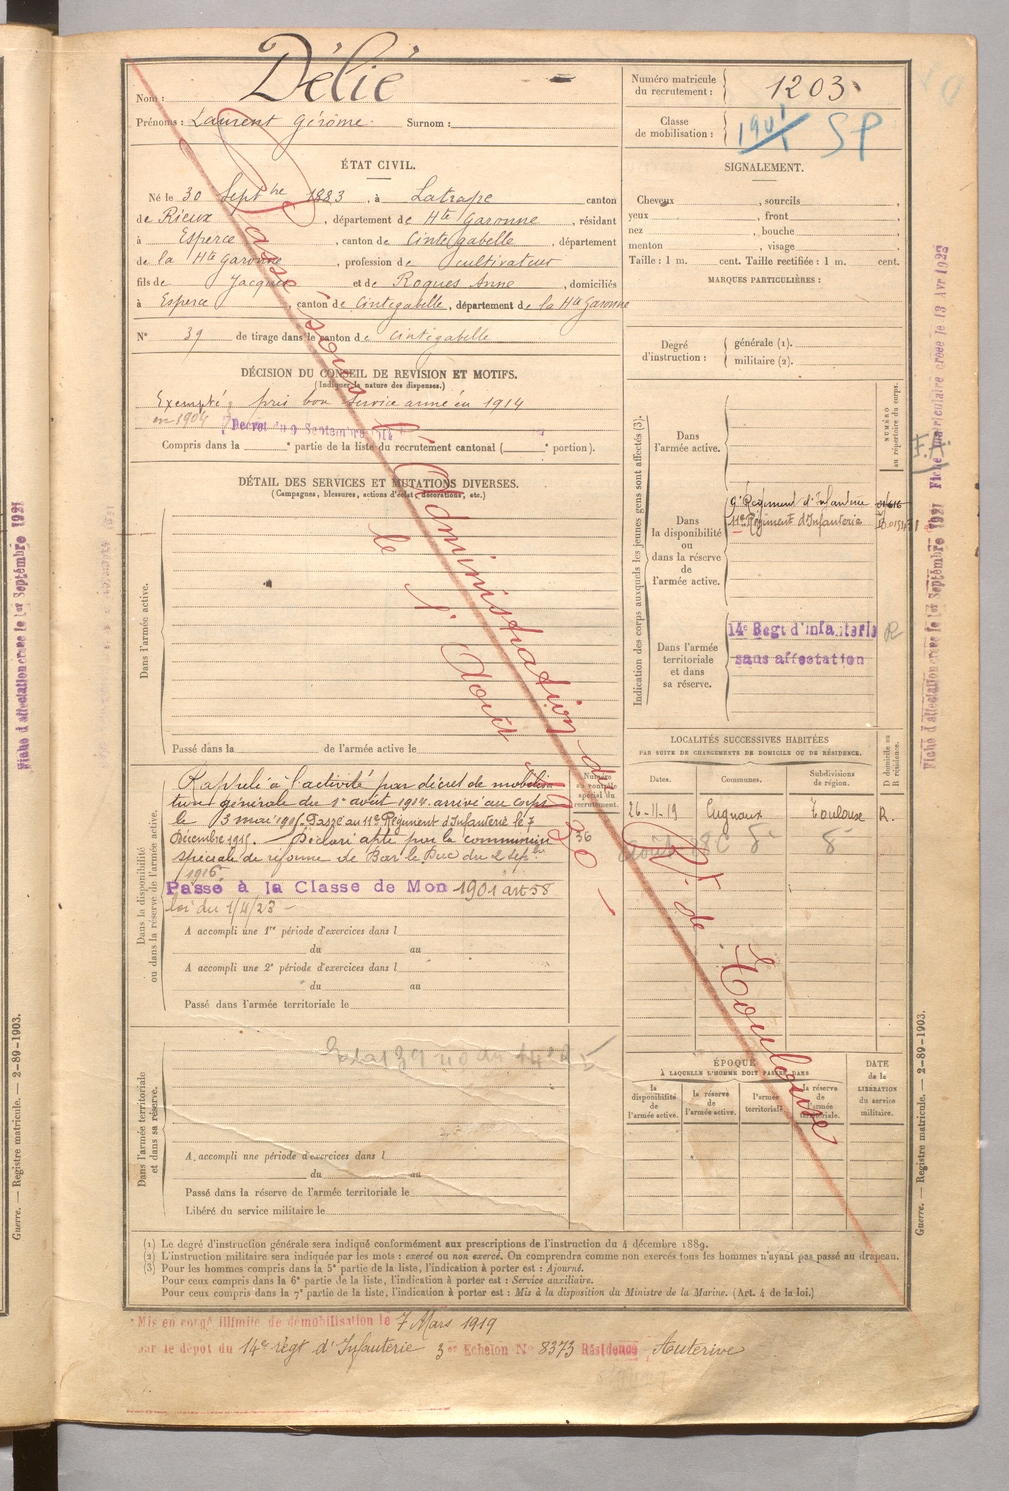 Nom : Délié
Prénoms : Laurent Gérôme. Surnom :
ÉTAT CIVIL.
Né le 30 Septbre 1883, à Latrape canton
de Rieux, département de Hte Garonne, résidant
à Esperce, canton de Cintegabelle, département
de la Hte Garonne, profession de cultivateur
fils de Jacques et de Roques Anne, domiciliés
à Esperce, canton de Cintegabelle, département de la Hte Garonne
N° 39 de tirage dans le canton de Cintegabelle
DÉCISION DU CONSEIL DE REVISION ET MOTIFS.
(Indiquer la nature des dispenses.)
Exempté; pris bon service armé en 1914
en 1904 Décret du 9 Septembre 1914
Compris dans la e partie de la liste du recrutement cantonal ( e portion).
DÉTAIL DES SERVICES ET MUTATIONS DIVERSES.
(Campagnes, blessures, actions d'éclat, décorations, etc.)
Dans l'armée active.
Passé dans la de l'armée active le
Dans la disponibilité
ou dans la réserve de l'armée active.
Rappelé à l'activité par décret de mobilisa
tion générale du 1er août 1914. arrivé au corps
le 3 mai 1915. Passé au 11e Régiment d'Infanterie le 7
Décembre 1915. Déclaré apte par la commission
spéciale de réforme de Bar le Duc du 2 sepbre
1916.
Passé à la Classe de Mon 1901 art 58
loi du 1/4/23 -
A accompli une 1re période d'exercices dans l
du au
A accompli une 2e période d'exercices dans l
du au
Passé dans l'armée territoriale le
Numéro
au contrôle
spécial du
recrutement.
36
Dans l'armée territoriale
et dans sa réserve.
A accompli une période d'exercices dans l
du au
Passé dans la réserve de l'armée territoriale le
Libéré du service militaire le
Numéro matricule
du recrutement : 1203
Classe
de mobilisation : 1901 SP
SIGNALEMENT.
Cheveux , sourcils ,
yeux , front ,
nez , bouche ,
menton , visage
Taille : 1 m. cent. Taille rectifiée : 1 m. cent.
MARQUES PARTICULIÈRES :
Degré
d'instruction :
générale (1).
militaire (2).
Indication des corps auxquels les jeunes gens sont affectés (3).
NUMÉRO
au répertoire du corps.
Dans
l'armée active.
Dans
la disponibilité
ou
dans la réserve
de
l'armée active.
9e Régiment d'Infanterie
11e Régiment d'Infanterie
Dans l'armée
territoriale
et dans
sa réserve.
14e Regt d'infanterie R
sans affectation
LOCALITÉS SUCCESSIVES HABITÉES
PAR SUITE DE CHANGEMENTS DE DOMICILE OU DE RÉSIDENCE.
Dates. Communes. Subdivisions
de région. D domicile ou
R résidence.
26-11-19 Cugnaux Toulouse R.
ÉPOQUE
À LAQUELLE L'HOMME DOIT PASSER DANS
la
disponibilité
de
l'armée active.
la réserve
de
l'armée active.
l'armée
territoriale.
la réserve
de
l'armée
territoriale.
DATE
de la
LIBÉRATION
du service
militaire.
Passé sous l'Administration du Bt. de Toulouse
le 1 Août 1930 -
(1) Le degré d'instruction générale sera indiqué conformément aux prescriptions de l'instruction du 4 décembre 1889.
(2) L'instruction militaire sera indiquée par les mots : exercé ou non exercé. On comprendra comme non exercés tous les hommes n'ayant pas passé au drapeau.
(3) Pour les hommes compris dans la 5e partie de la liste, l'indication à porter est : Ajourné.
Pour ceux compris dans la 6e partie de la liste, l'indication à porter est : Service auxiliaire.
Pour ceux compris dans la 7e partie de la liste, l'indication à porter est : Mis à la disposition du Ministre de la Marine. (Art. 4 de la loi.)
Mis en congé illimité de démobilisation le 7 Mars 1919
par le dépot du 14e régt d'Infanterie 3er Echelon N° 8373 Résidence Auterive
Fiche d'affectation créée le 1er Septembre 1921
Fiche matriculaire créée le 13 Avr 1923
Guerre. — Registre matricule. — 2-89-1903.
Fiche d'affectation créée le 1er Septembre 1921
Guerre. — Registre matricule. — 2-89-1903.